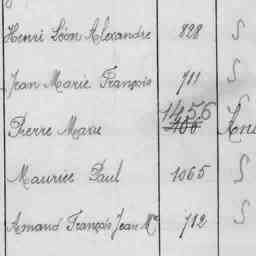 Henri Léon Alexandre 828 S
Jean Marie François 711 S
1455
Pierre Marie 400
Maurice Paul 1065 S
Armand François Jean Mie 712 S